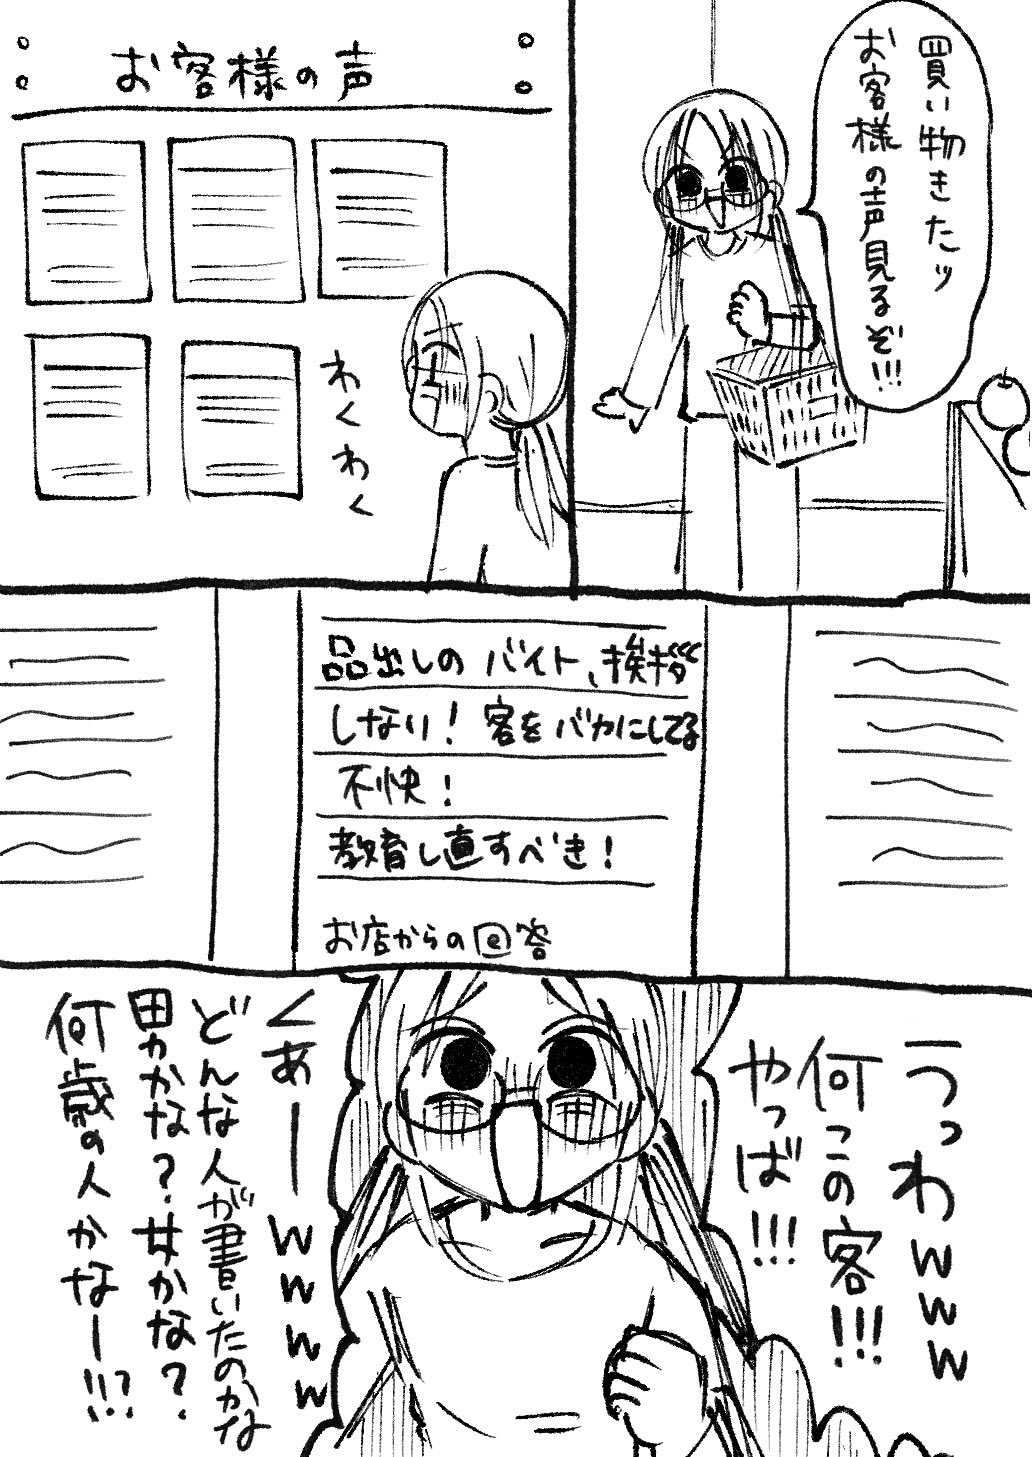 買い物きたッ
お客様の声見るぞ!!!
お客様の声
わくわく
品出しのバイト、挨拶
しない！客をバカにしてる
不快！
教育し直すべき！
お店からの回答
うっわwww
何この客!!!
やっば!!!
くあーwwww
どんな人が書いたのかな
男かな？女かな？
何歳の人かなー!!?